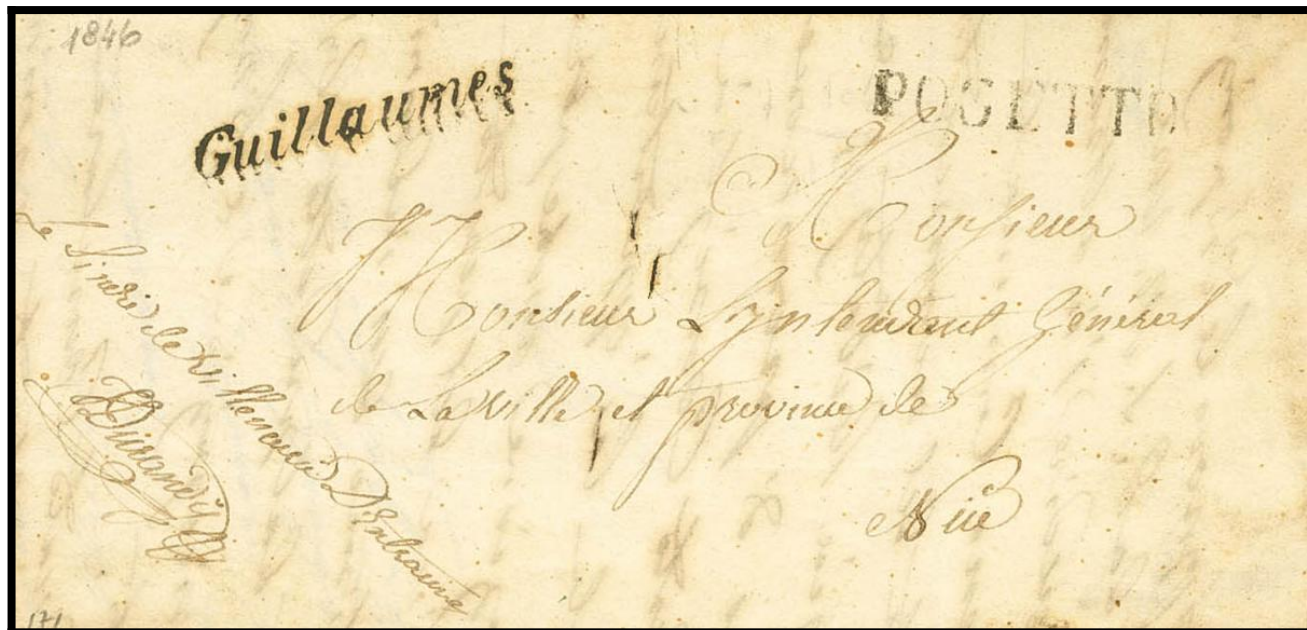 1846
Guillaumes
POGETTO
Monsieur
Monsieur Lyntendant Général
de La ville et province de
Nice
Le Sindic de Villeneuve D'Entraune
171